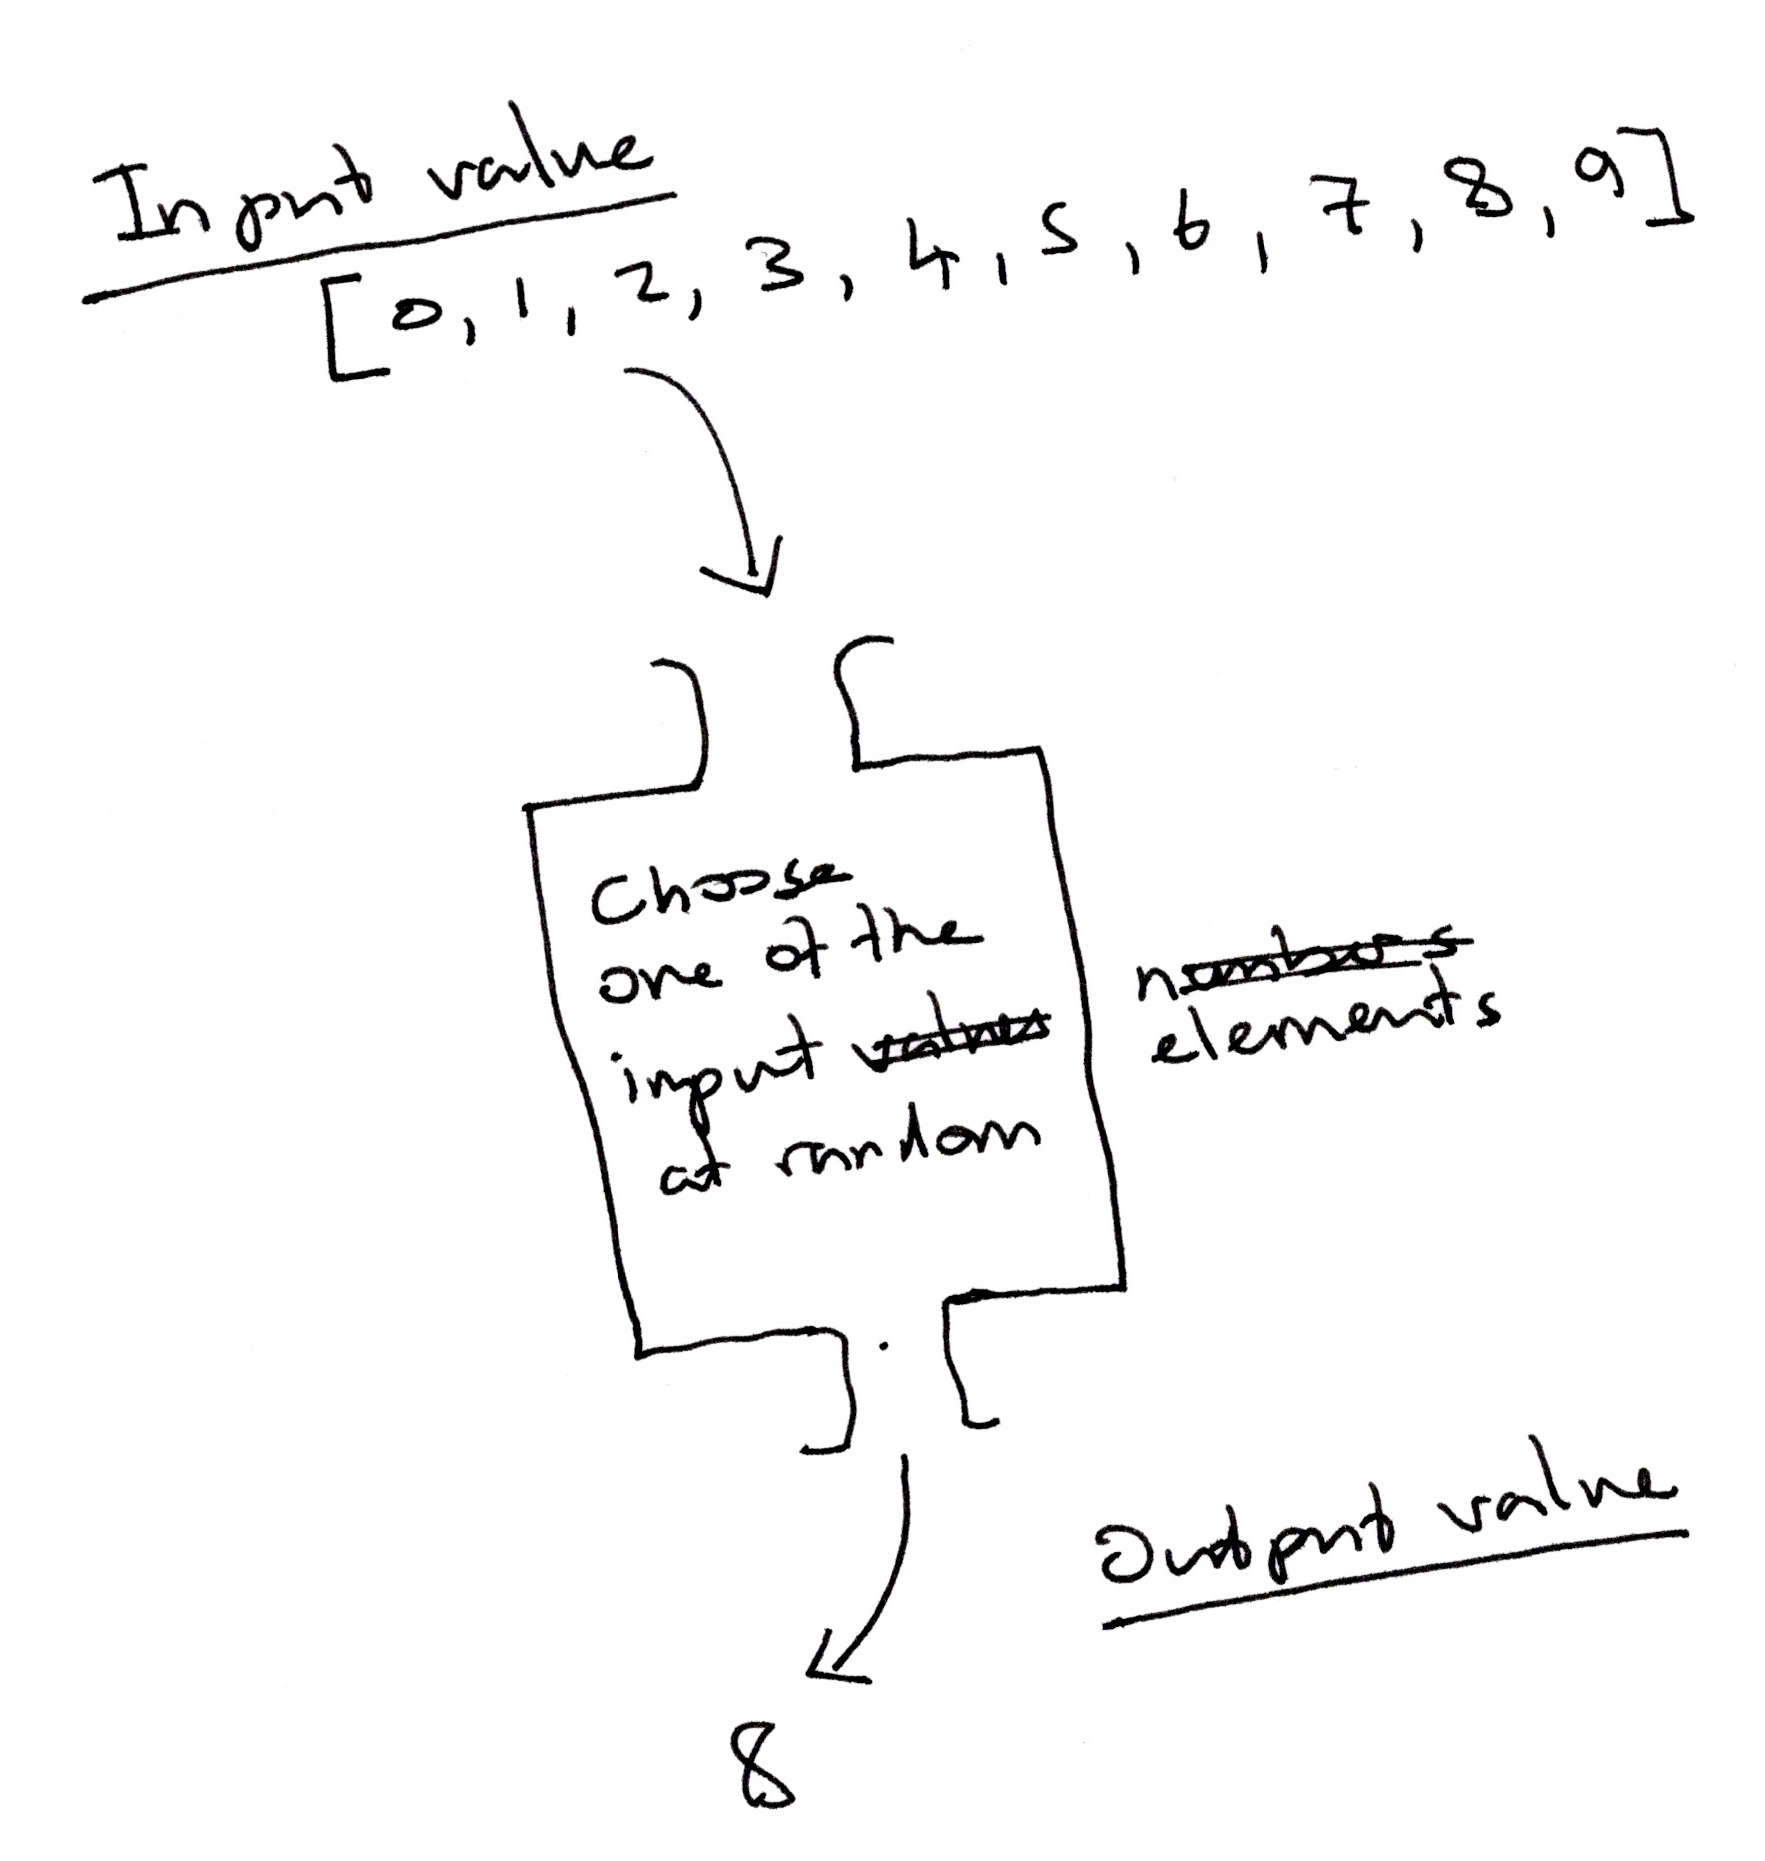 Input value
[0, 1, 2, 3, 4, 5, 6, 7, 8, 9]
Choose
one of the
input values
at random
numbers
elements
Output value
8